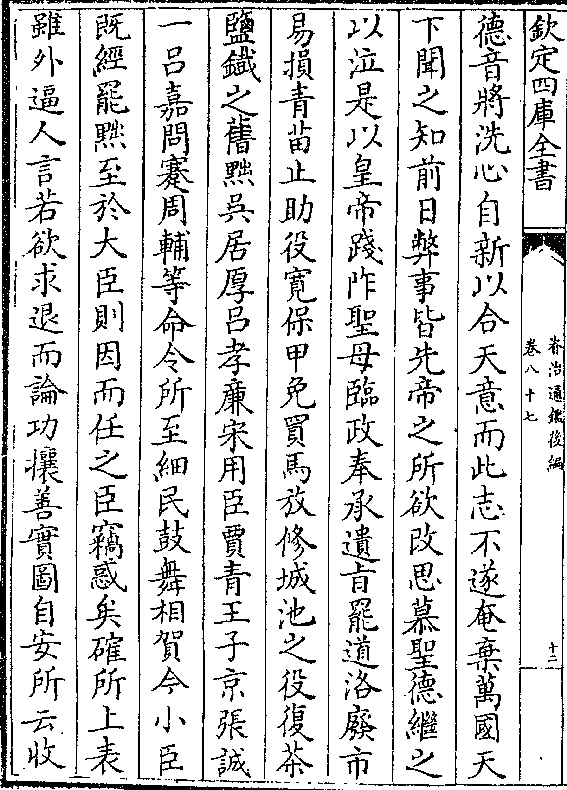 欽定四庫全書
資治通鑑後編
卷八十七
十二
德音將洗心自新以合天意而此志不遂奄棄萬國天
下聞之知前日弊事皆先帝之所欲改思慕聖德繼之
以泣是以皇帝踐阼聖母臨政奉承遺旨罷道洛廢市
易損青苗止助役寛保甲免買馬放修城池之役復茶
鹽鐵之舊黜吳居厚吕孝廉宋用臣賈青王子京張誠
一吕嘉問蹇周輔等命令所至細民鼓舞相賀今小臣
既經罷黜至於大臣則因而任之臣竊惑矣確所上表
雖外逼人言若欲求退而論功攘善實圖自安所云收